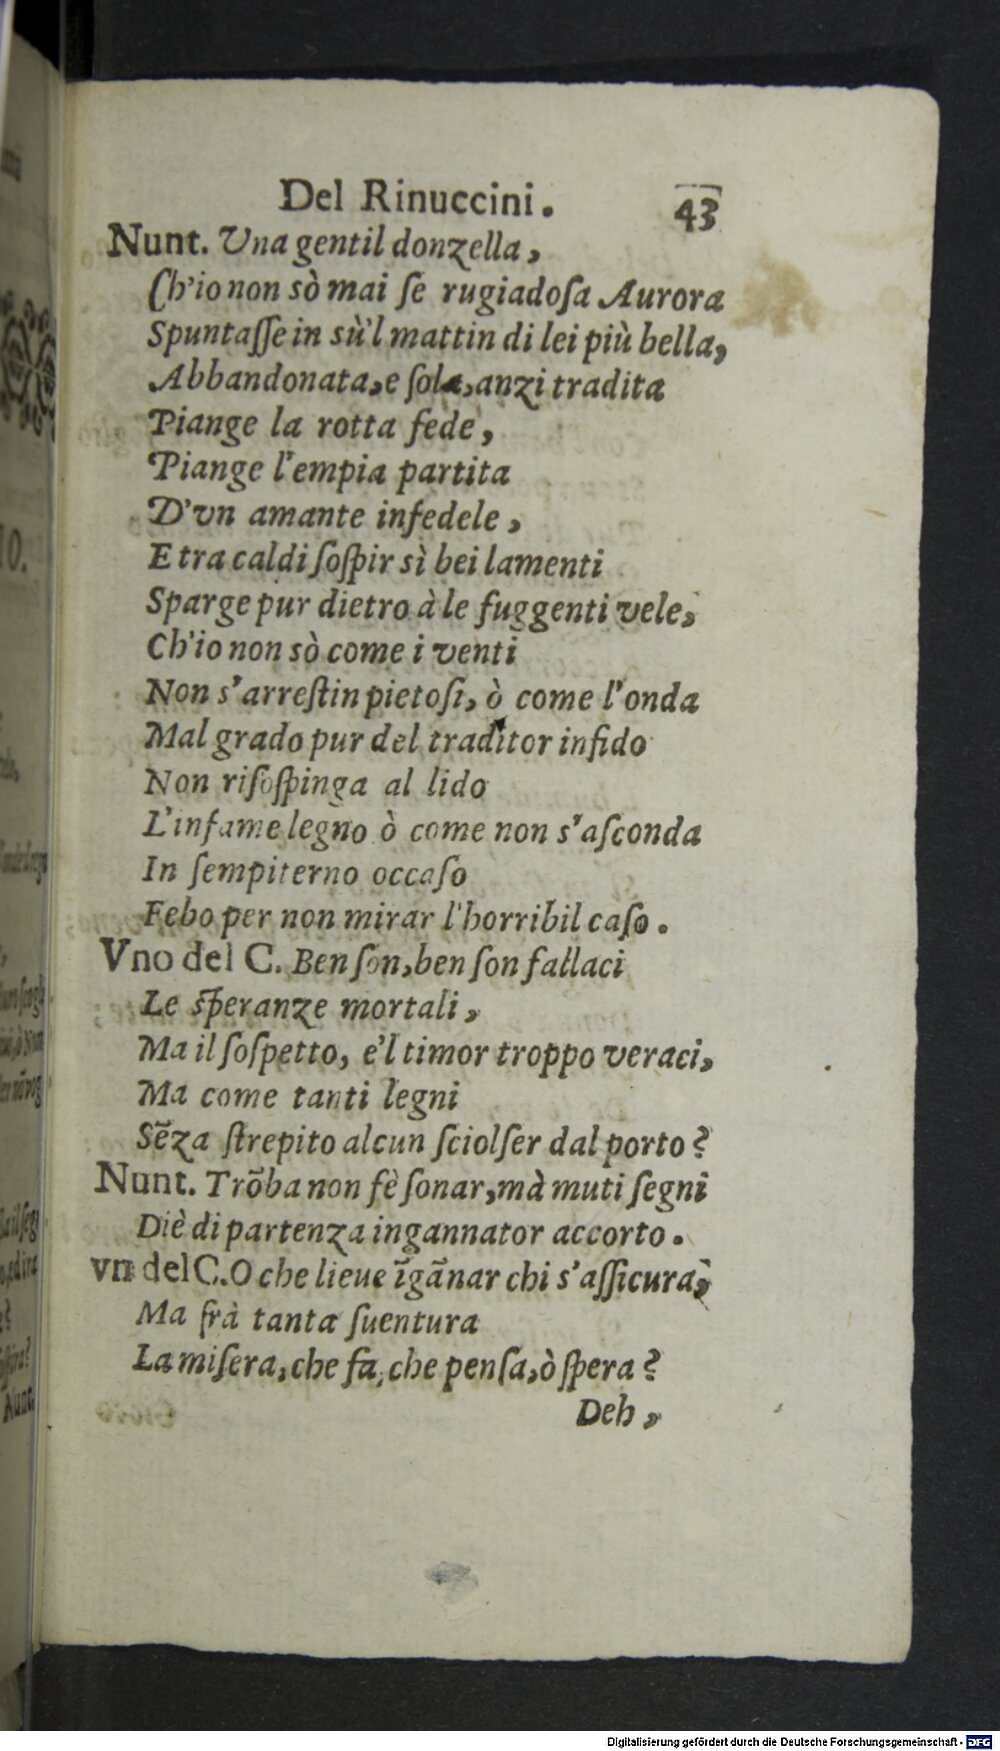 Del Rinuccini. 43
Nunt. Una gentil donzella,
Ch'io non sò mai ſe rugiadoſa Aurora
Spuntaſſe in sù'l mattin di lei più bella,
Abbandonata, e ſola, anzi tradita
Piange la rotta fede,
Piange l'empia partita
D'vn amante infedele,
E tra caldi ſoſpir sì bei lamenti
Sparge pur dietro à le fuggenti vele,
Ch'io non sò come i venti
Non s'arreſtin pietoſi, ò come l'onda
Mal grado pur del traditor infido
Non riſoſpinga al lido
L'infame legno ò come non s'aſconda
In ſempiterno occaſo
Febo per non mirar l'horribil caſo.
Vno del C. Ben ſon, ben ſon fallaci
Le ſperanze mortali,
Ma il ſoſpetto, e'l timor troppo veraci,
Ma come tanti legni
Sẽza ſtrepito alcun ſciolſer dal porto?
Nunt. Trõba non fè ſonar, mà muti ſegni
Diè di partenza ingannator accorto.
vn del C. O che lieue ĩgãnar chi s'aſſicura,
Ma frà tanta ſuentura
La miſera, che fa, che penſa, ò ſpera?
Deh,
Digitalisierung gefördert durch die Deutsche Forschungsgemeinschaft - DFG